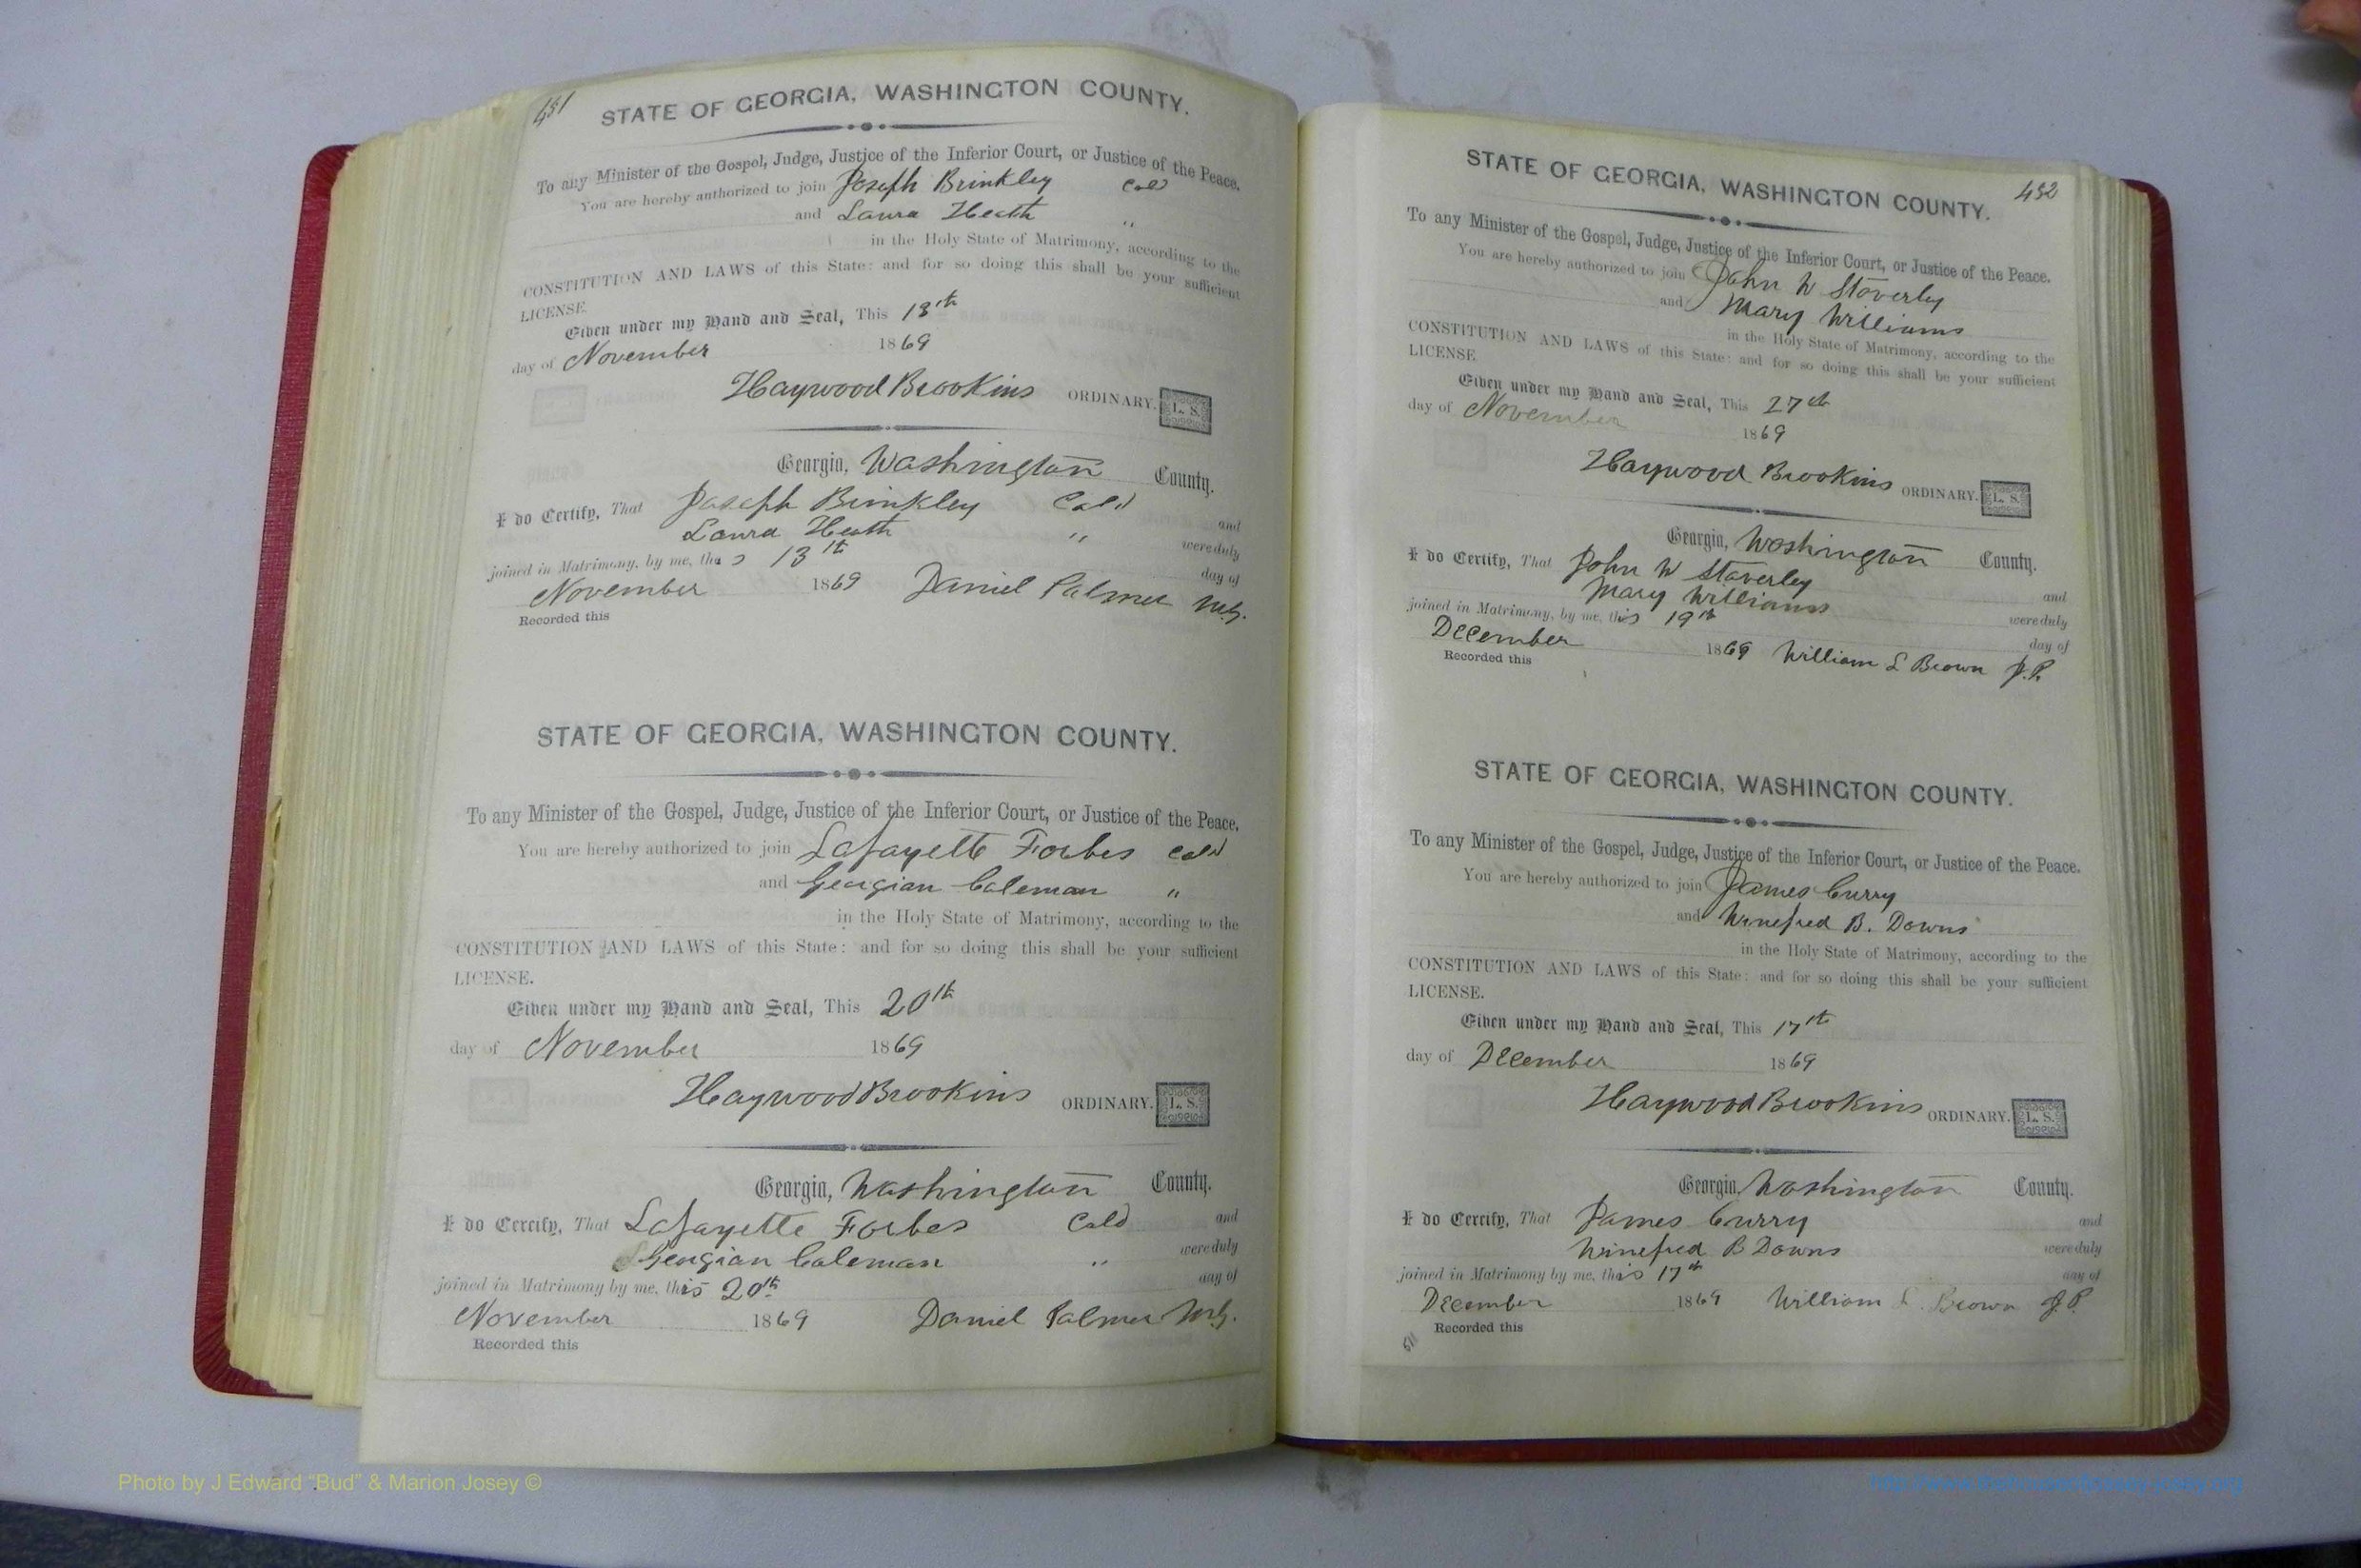 451
STATE OF GEORGIA, WASHINGTON COUNTY.
To any Minister of the Gospel, Judge, Justice of the Inferior Court, or Justice of the Peace.
You are hereby authorized to join Joseph Brinkley Cold
and Laura Heath "
in the Holy State of Matrimony, according to the
CONSTITUTION AND LAWS of this State: and for so doing this shall be your sufficient
LICENSE.
Given under my Hand and Seal, This 13th
day of November 1869
Haywood Brookins ORDINARY. L. S.
Georgia, Washington County.
I do Certify, That Joseph Brinkley Cold and
Laura Heath " were duly
joined in Matrimony, by me, this 13th day of
November 1869 Daniel Palmer M.G.
Recorded this
STATE OF GEORGIA, WASHINGTON COUNTY.
To any Minister of the Gospel, Judge, Justice of the Inferior Court, or Justice of the Peace,
You are hereby authorized to join Lafayette Forbes Cold
and Georgian Coleman "
in the Holy State of Matrimony, according to the
CONSTITUTION AND LAWS of this State: and for so doing this shall be your sufficient
LICENSE.
Given under my Hand and Seal, This 20th
day of November 1869
Haywood Brookins ORDINARY. L. S.
Georgia, Washington County.
I do Certify, That Lafayette Forbes Cold and
Georgian Coleman " were duly
joined in Matrimony by me, this 20th day of
November 1869 Daniel Palmer M.G.
Recorded this
STATE OF GEORGIA, WASHINGTON COUNTY. 452
To any Minister of the Gospel, Judge, Justice of the Inferior Court, or Justice of the Peace.
You are hereby authorized to join John W Staverley
and Mary Williams
in the Holy State of Matrimony, according to the
CONSTITUTION AND LAWS of this State: and for so doing this shall be your sufficient
LICENSE
Given under my Hand and Seal, This 27th
day of November 1869
Haywood Brookins ORDINARY. L. S.
Georgia, Washington County.
I do Certify, That John W Staverley and
Mary Williams were duly
joined in Matrimony, by me, this 19th day of
December 1869 William L Brown J.P.
Recorded this
STATE OF GEORGIA, WASHINGTON COUNTY.
To any Minister of the Gospel, Judge, Justice of the Inferior Court, or Justice of the Peace.
You are hereby authorized to join James Curry
and Winefred B. Downs
in the Holy State of Matrimony, according to the
CONSTITUTION AND LAWS of this State: and for so doing this shall be your sufficient
LICENSE.
Given under my Hand and Seal, This 17th
day of December 1869
Haywood Brookins ORDINARY. L. S.
Georgia, Washington County.
I do Certify, That James Curry and
Winefred B Downs were duly
joined in Matrimony by me, this 17th day of
December 1869 William L. Brown J.P.
Recorded this
Photo by J Edward “Bud” & Marion Josey ©